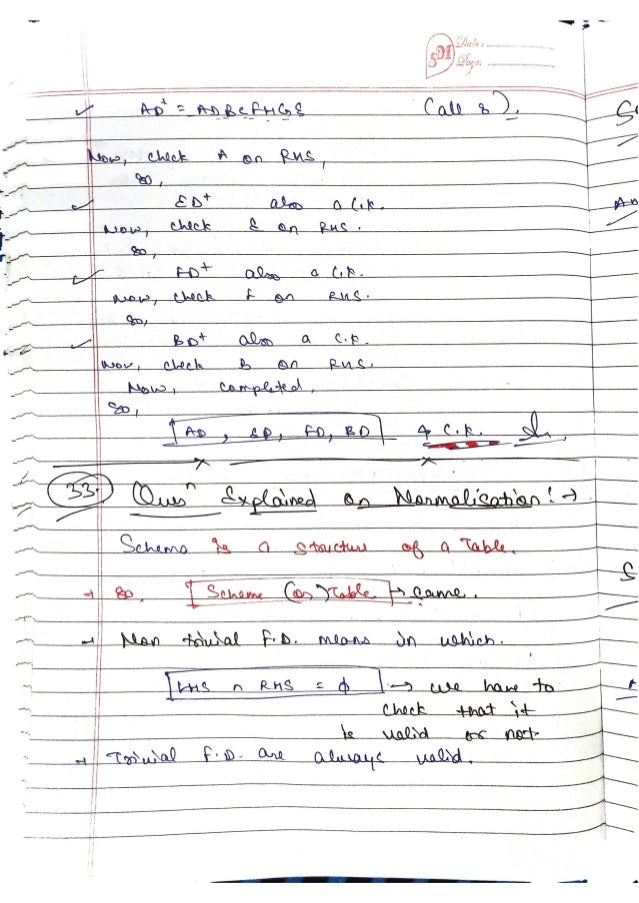 Date:
Page:
AD+ = ADBCFHGE (all 8).
Now, check A on RHS,
so,
ED+ also a C.K.
Now, check E on RHS.
so,
FD+ also a C.K.
Now, check F on RHS.
so,
BD+ also a C.K.
Now, check B on RHS.
Now, completed.
so,
AD, ED, FD, BD 4 C.K.
33. Quesn Explained on Normalisation! →
Schema is a structure of a Table.
→ so. Scheme (or) Table → same.
→ Non trivial F.D. means in which.
LHS ∩ RHS = ϕ → we have to
check that it
is valid or not.
→ Trivial F.D. are always valid.